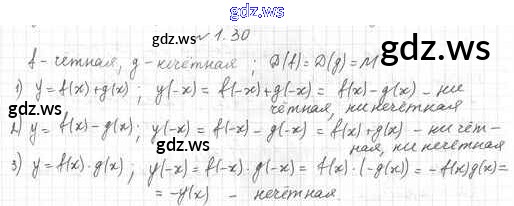 gdz.ws
№ 1.30
f - четная, g - нечётная ; D(f) = D(g) = M
gdz.ws
1) y = f(x) + g(x) ; y(-x) = f(-x) + g(-x) = f(x) - g(x) - ни
чётная, ни нечётная
gdz.ws
2) y = f(x) - g(x) ; y(-x) = f(-x) - g(-x) = f(x) + g(x) - ни чёт-
ная, ни нечётная
gdz.ws
3) y = f(x) · g(x) ; y(-x) = f(-x) · g(-x) = f(x) · (-g(x)) = -f(x)g(x) =
= -y(x) - нечётная.
gdz.ws